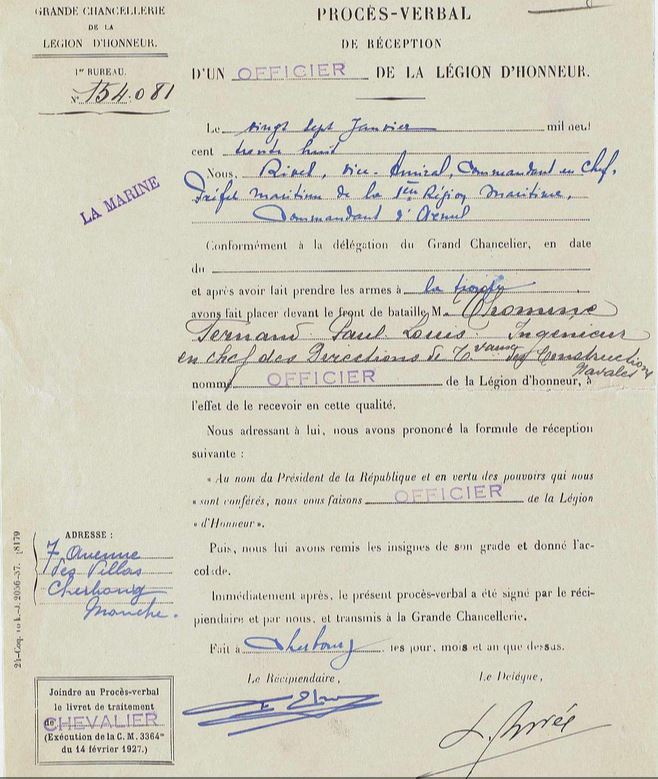 GRANDE CHANCELLERIE
DE LA
LÉGION D'HONNEUR.
1er BUREAU.
N° 154.081
LA MARINE
PROCÈS-VERBAL
DE RÉCEPTION
D'UN OFFICIER DE LA LÉGION D'HONNEUR.
Le vingt sept Janvier mil neuf
cent trente huit
Nous, vice-Amiral, Commandant en Chef,
Préfet maritime de la 1ère Région Maritime,
Commandant d'Arme
Conformément à la délégation du Grand Chancelier, en date
du
et après avoir fait prendre les armes à la
avons fait placer devant le front de bataille M. Thomine
Fernand Paul Louis Ingénieur
en chef des Directions de Tvaux des Constructions
Navales
nommé OFFICIER de la Légion d'honneur, à
l'effet de le recevoir en cette qualité.
Nous adressant à lui, nous avons prononcé la formule de réception
suivante :
« Au nom du Président de la République et en vertu des pouvoirs qui nous
« sont conférés, nous vous faisons OFFICIER de la Légion
« d'Honneur ».
Puis, nous lui avons remis les insignes de son grade et donné l'ac-
colade.
Immédiatement après, le présent procès-verbal a été signé par le réci-
piendaire et par nous, et transmis à la Grande Chancellerie.
Fait à Cherbourg les jour, mois et an que dessus.
Le Récipiendaire, Le Délégué,
ADRESSE :
7 Avenue
des Villas
Cherbourg
Manche.
Joindre au Procès-verbal
le livret de traitement
de CHEVALIER
(Exécution de la C. M. 3364
du 14 février 1927.)